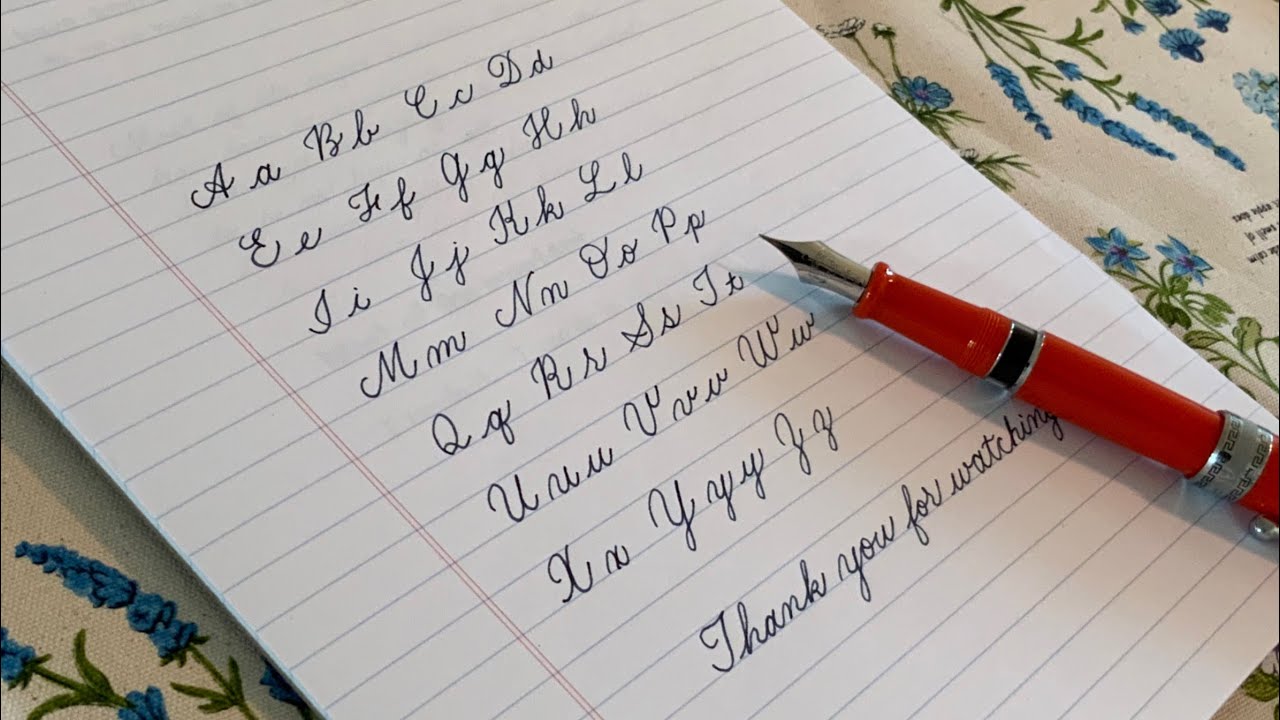 A a B b C c D d
E e F f G g H h
I i J j K k L l
M m N n O o P p
Q q R r S s T t
U u u V v v W w
X x Y y y Z z
Thank you for watching